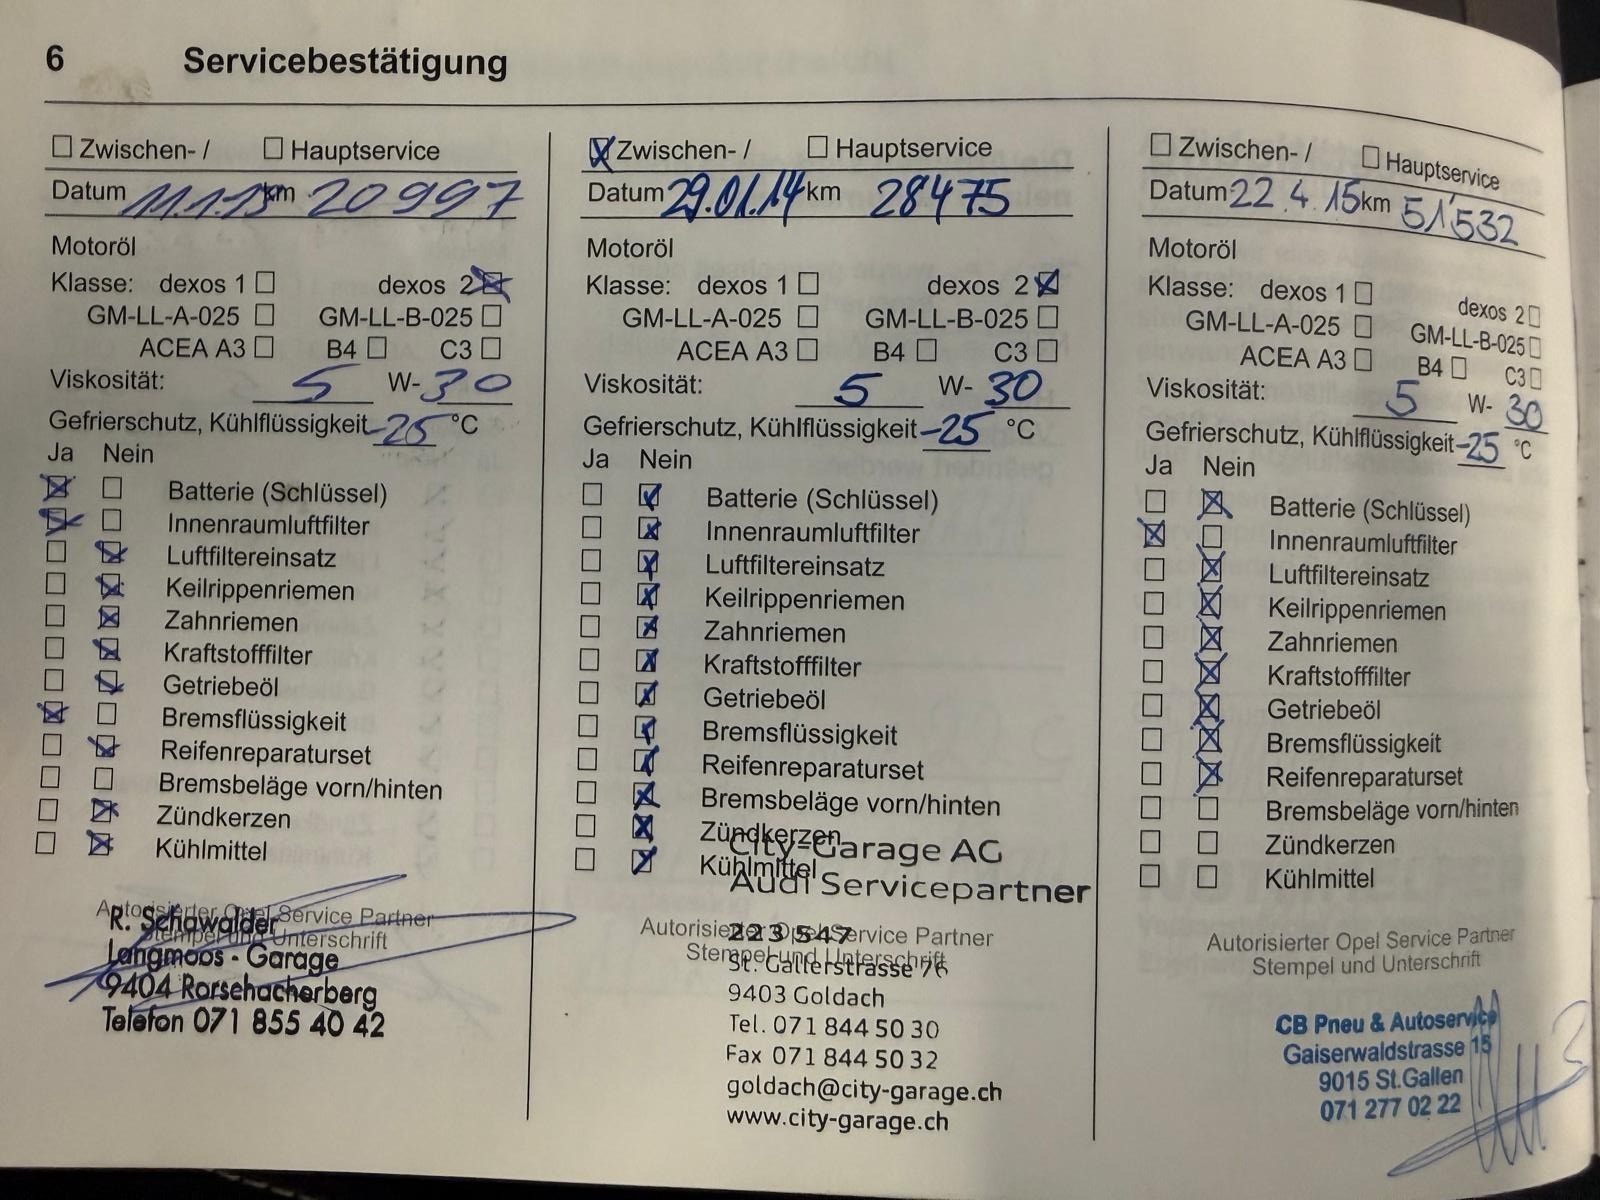 6 Servicebestätigung
Zwischen- / Hauptservice
Datum 11.1.13 km 20997
Motoröl
Klasse: dexos 1 dexos 2
GM-LL-A-025 GM-LL-B-025
ACEA A3 B4 C3
Viskosität: 5 W- 30
Gefrierschutz, Kühlflüssigkeit -25 °C
Ja Nein
Batterie (Schlüssel)
Innenraumluftfilter
Luftfiltereinsatz
Keilrippenriemen
Zahnriemen
Kraftstofffilter
Getriebeöl
Bremsflüssigkeit
Reifenreparaturset
Bremsbeläge vorn/hinten
Zündkerzen
Kühlmittel
Autorisierter Opel Service Partner
Stempel und Unterschrift
R. Schawalder
Langmoos - Garage
9404 Rorschacherberg
Telefon 071 855 40 42
Zwischen- / Hauptservice
Datum 29.01.14 km 28475
Motoröl
Klasse: dexos 1 dexos 2
GM-LL-A-025 GM-LL-B-025
ACEA A3 B4 C3
Viskosität: 5 W- 30
Gefrierschutz, Kühlflüssigkeit -25 °C
Ja Nein
Batterie (Schlüssel)
Innenraumluftfilter
Luftfiltereinsatz
Keilrippenriemen
Zahnriemen
Kraftstofffilter
Getriebeöl
Bremsflüssigkeit
Reifenreparaturset
Bremsbeläge vorn/hinten
Zündkerzen
Kühlmittel
City-Garage AG
Audi Servicepartner
Autorisierter Opel Service Partner
Stempel und Unterschrift
223 547
St. Gallerstrasse 76
9403 Goldach
Tel. 071 844 50 30
Fax 071 844 50 32
goldach@city-garage.ch
www.city-garage.ch
Zwischen- / Hauptservice
Datum 22.4.15 km 51'532
Motoröl
Klasse: dexos 1 dexos 2
GM-LL-A-025 GM-LL-B-025
ACEA A3 B4 C3
Viskosität: 5 W- 30
Gefrierschutz, Kühlflüssigkeit -25 °C
Ja Nein
Batterie (Schlüssel)
Innenraumluftfilter
Luftfiltereinsatz
Keilrippenriemen
Zahnriemen
Kraftstofffilter
Getriebeöl
Bremsflüssigkeit
Reifenreparaturset
Bremsbeläge vorn/hinten
Zündkerzen
Kühlmittel
Autorisierter Opel Service Partner
Stempel und Unterschrift
CB Pneu & Autoservice
Gaiserwaldstrasse 15
9015 St.Gallen
071 277 02 22